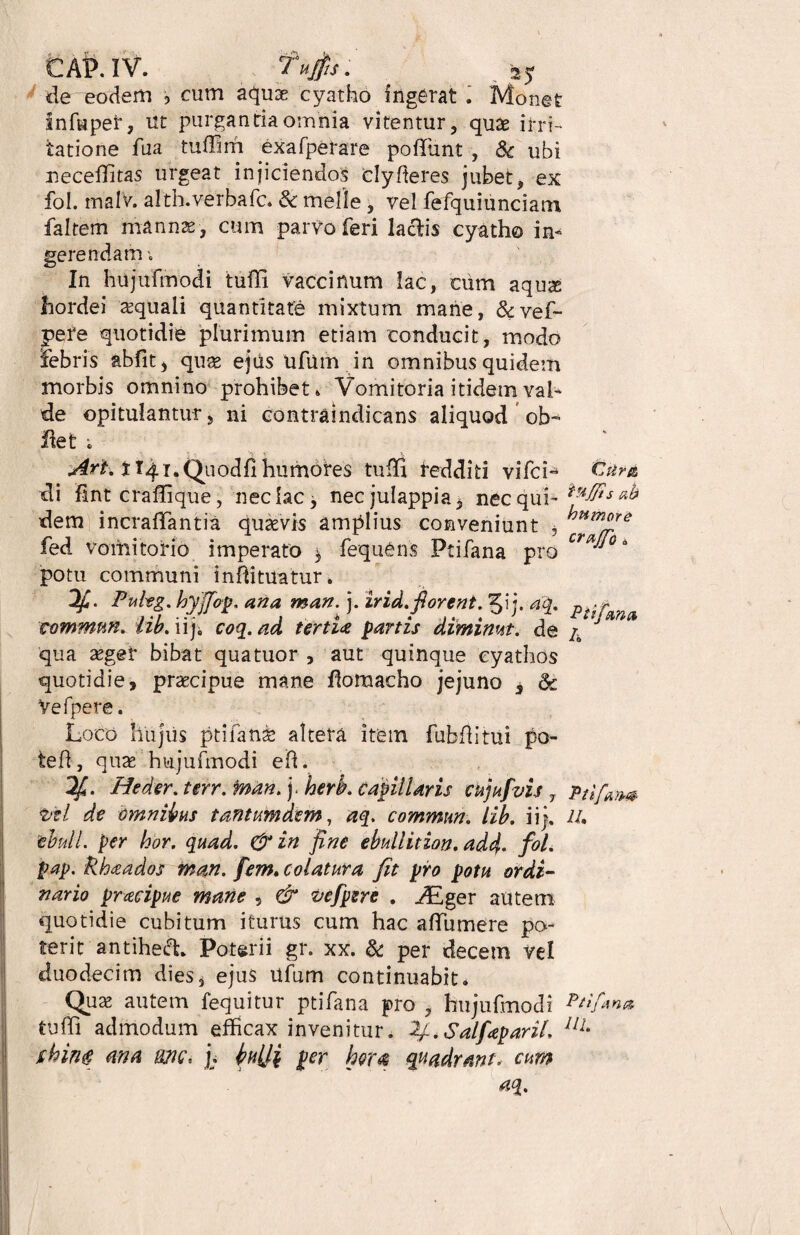 CAP. IV. Tuſſis. 25
de eodem, cum aquæ cyatho ingerat. Monet
inſuper, ut purgantia omnia vitentur, quæ irri-
tatione ſua tuſſim exaſperare poſſunt, & ubi
neceſſitas urgeat injiciendos clyſteres jubet, ex
fol. malv. alth. verbaſc. & melle, vel ſeſquiunciam
ſaltem mannæ, cum parvo ſeri lactis cyatho in-
gerendam.
In hujuſmodi tuſſi vaccinum lac, cum aquæ
hordei æquali quantitate mixtum mane, & veſ-
pere quotidie plurimum etiam conducit, modo
febris abſit, quæ ejus uſum in omnibus quidem
morbis omnino prohibet. Vomitoria itidem val-
de opitulantur, ni contraindicans aliquod ob-
ſtet.
Art. 1141. Quodſi humores tuſſi redditi viſci- Cura
di ſint craſſique, nec lac, nec julappia, nec qui- tuſſis ab
dem incraſſantia quævis amplius conveniunt, humore
ſed vomitorio imperato, ſequens Ptiſana pro craſſo.
potu communi inſtituatur.
℞. Puleg. hyſſop. ana man. j. irid. florent. ʒij. aq. Ptiſana
commun. lib. iij. coq. ad tertiæ partis diminut. de I.
qua æger bibat quatuor, aut quinque cyathos
quotidie, præcipue mane ſtomacho jejuno, &
veſpere.
Loco hujus ptiſanæ altera item ſubſtitui po-
teſt, quæ hujuſmodi eſt.
℞. Heder. terr. man. j. herb. capillaris cujuſvis, Ptiſana
vel de omnibus tantumdem, aq. commun. lib. iij. II.
ebull. per hor. quad. & in fine ebullition. add. fol.
pap. Rhæados man. ſem. colatura fit pro potu ordi-
nario præcipue mane, & veſpere. Æger autem
quotidie cubitum iturus cum hac aſſumere po-
terit antihect. Poterii gr. xx. & per decem vel
duodecim dies, ejus uſum continuabit.
Quæ autem ſequitur ptiſana pro, hujuſmodi Ptiſana
tuſſi admodum efficax invenitur. ℞. Salſæparil. III.
chinæ ana unc. j. bulli per horæ quadrant. cum
aq.